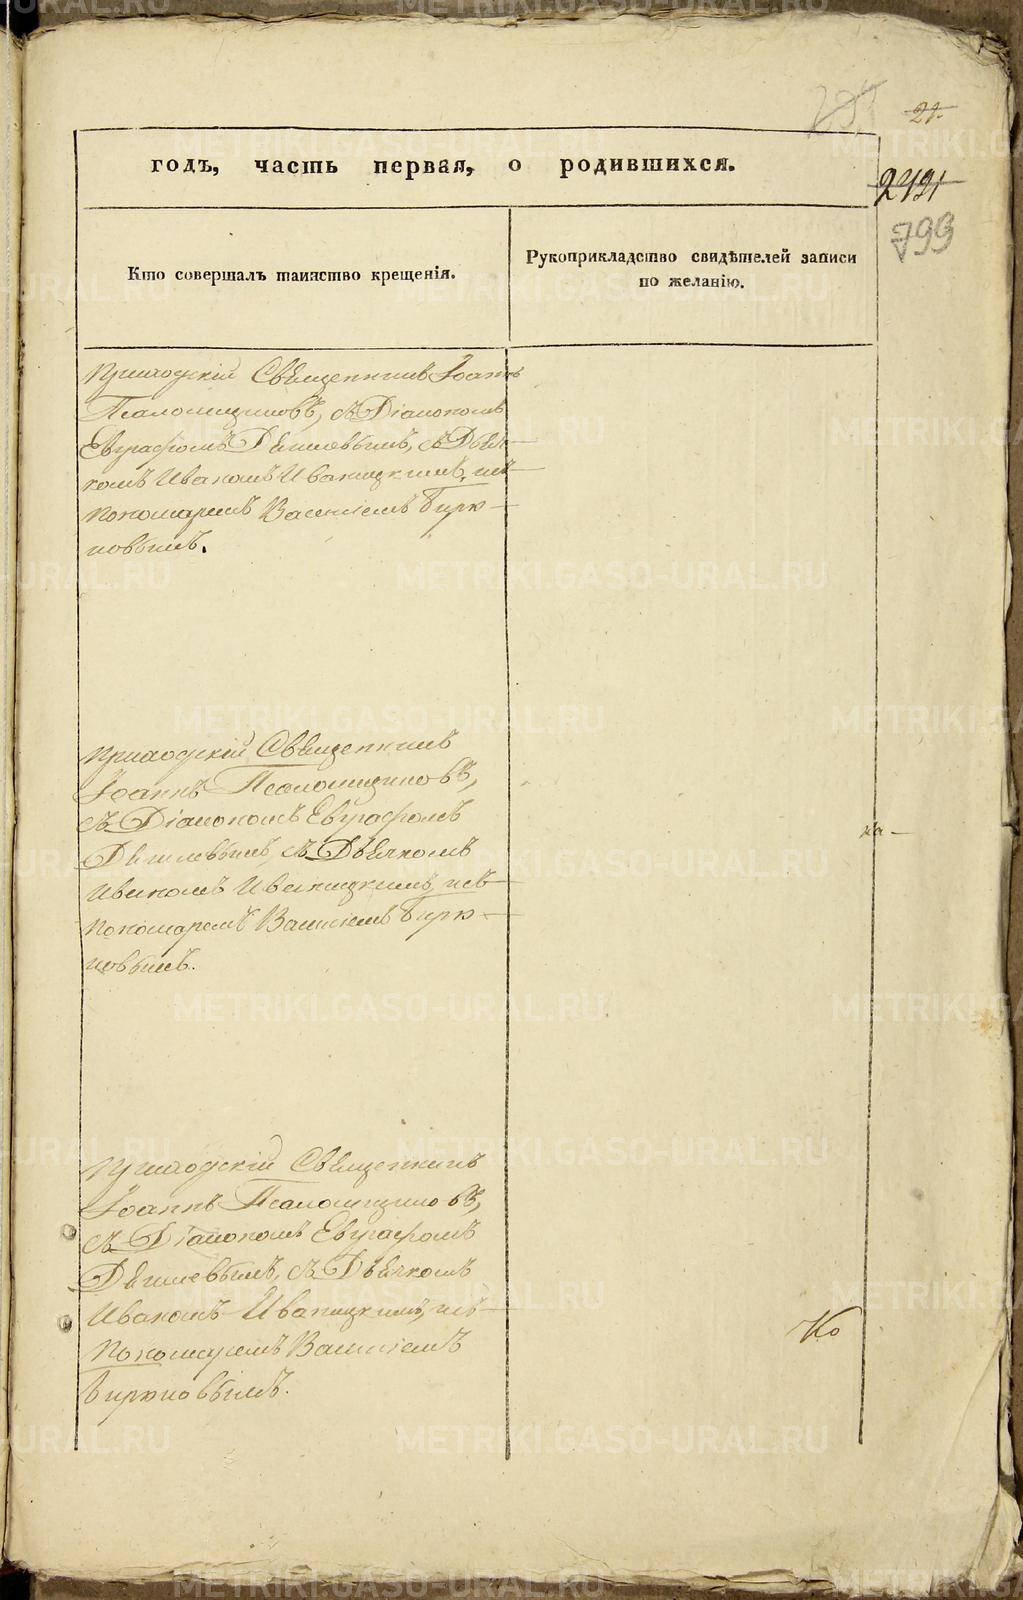 21.
2421
799
годъ, часть первая, о родившихся.
Кто совершалъ таинство крещенія.
Рукоприкладство свидѣтелей записи
по желанію.
Приходскій Священникъ Іоаннъ
Псаломщиковъ, съ Діакономъ
Евграфомъ Дягилевымъ, съ Дьяч-
комъ Иваномъ Иваницкимъ, и съ
Пономаремъ Василіемъ Бирю-
ковымъ.
Приходскій Священникъ
Іоаннъ Псаломщиковъ,
съ Діакономъ Евграфомъ
Дягилевымъ, съ Дьячкомъ
Иваномъ Иваницкимъ, и съ
Пономаремъ Василіемъ Бирю-
ковымъ.
ка-
Приходскій Священникъ
Іоаннъ Псаломщиковъ,
съ Діакономъ Евграфомъ
Дягилевымъ, съ Дьячкомъ
Иваномъ Иваницкимъ, и съ
Пономаремъ Василіемъ
Бирюковымъ.
Ко
METRIKI.GASO-URAL.RU